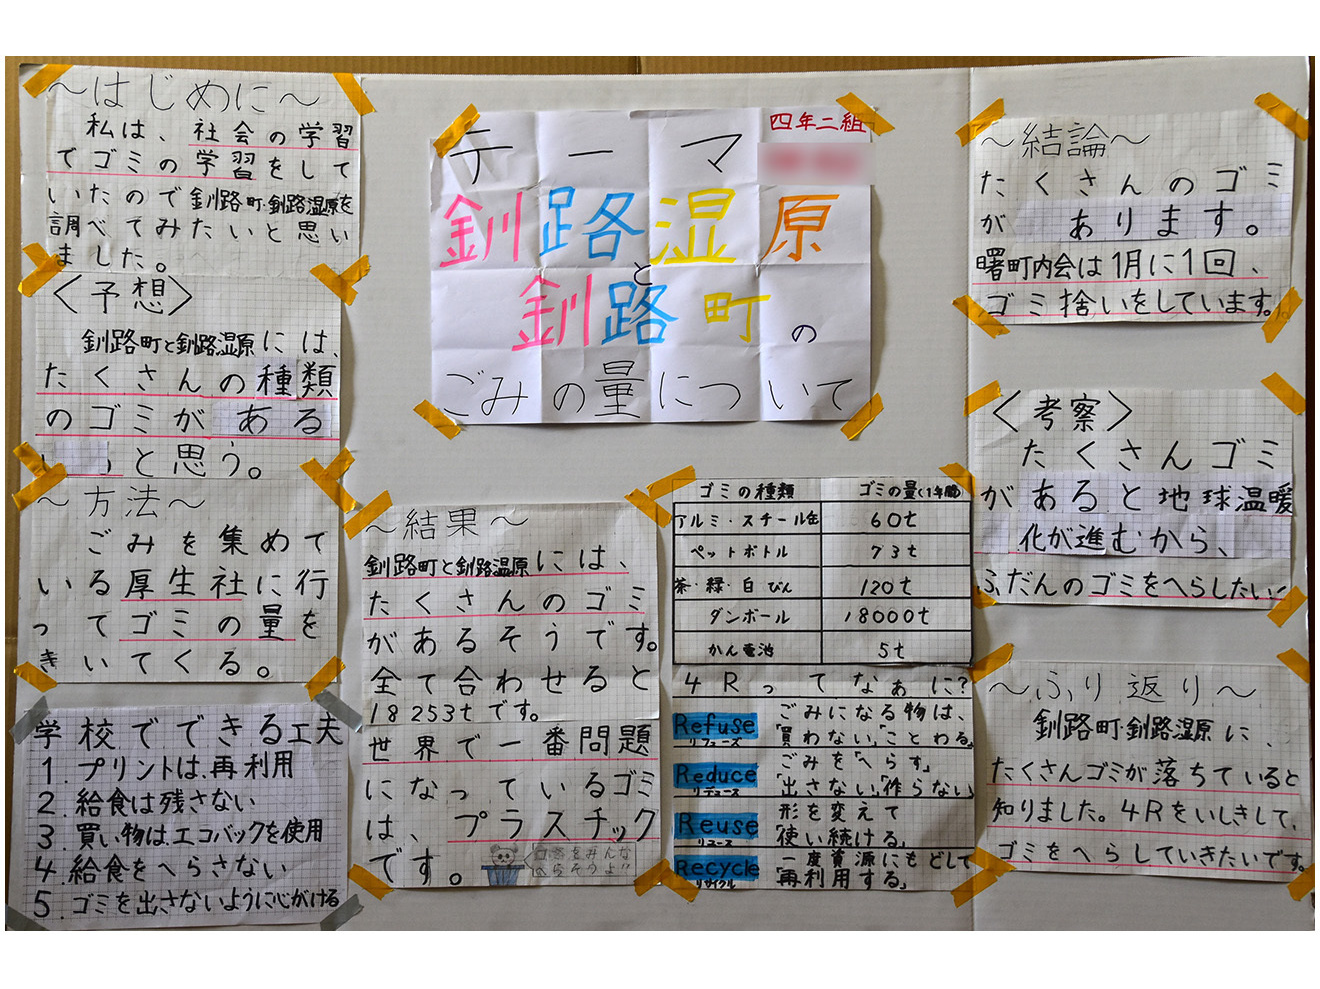 ～はじめに～
私は、社会の学習
でゴミの学習をして
いたので釧路町・釧路湿原を
調べてみたいと思い
ました。
〈予想〉
釧路町と釧路湿原には、
たくさんの種類
のゴミがある
と思う。
～方法～
ごみを集めて
いる厚生社に行
ってゴミの量を
きいてくる。
学校でできる工夫
1.プリントは、再利用
2.給食は残さない
3.買い物はエコバックを使用
4.給食をへらさない
5.ゴミを出さないように心がける
四年二組
テーマ
釧路湿原
と
釧路町の
ごみの量について
～結果～
釧路町と釧路湿原には、
たくさんのゴミ
があるそうです。
全て合わせると
18253tです。
世界で一番問題
になっているゴミ
は、プラスチック
です。
ゴミをみんな
へらそうよ!!
ゴミの種類 ゴミの量(1年間)
アルミ・スチール缶 60t
ペットボトル 73t
茶・緑・白びん 120t
ダンボール 18000t
かん電池 5t
4Rってなぁに?
Refuse リフューズ ごみになる物は、
「買わない」「ことわる」
Reduce リデュース ごみを「へらす」
「出さない」「作らない」
Reuse リユース 形を変えて
「使い続ける」
Recycle リサイクル 一度資源にもどして
「再利用する」
～結論～
たくさんのゴミ
があります。
曙町内会は1月に1回、
ゴミ捨いをしています。
〈考察〉
たくさんゴミ
があると地球温暖
化が進むから、
ふだんのゴミをへらしたい!
～ふり返り～
釧路町・釧路湿原に、
たくさんゴミが落ちていると
知りました。4Rをいしきして、
ゴミをへらしていきたいです。